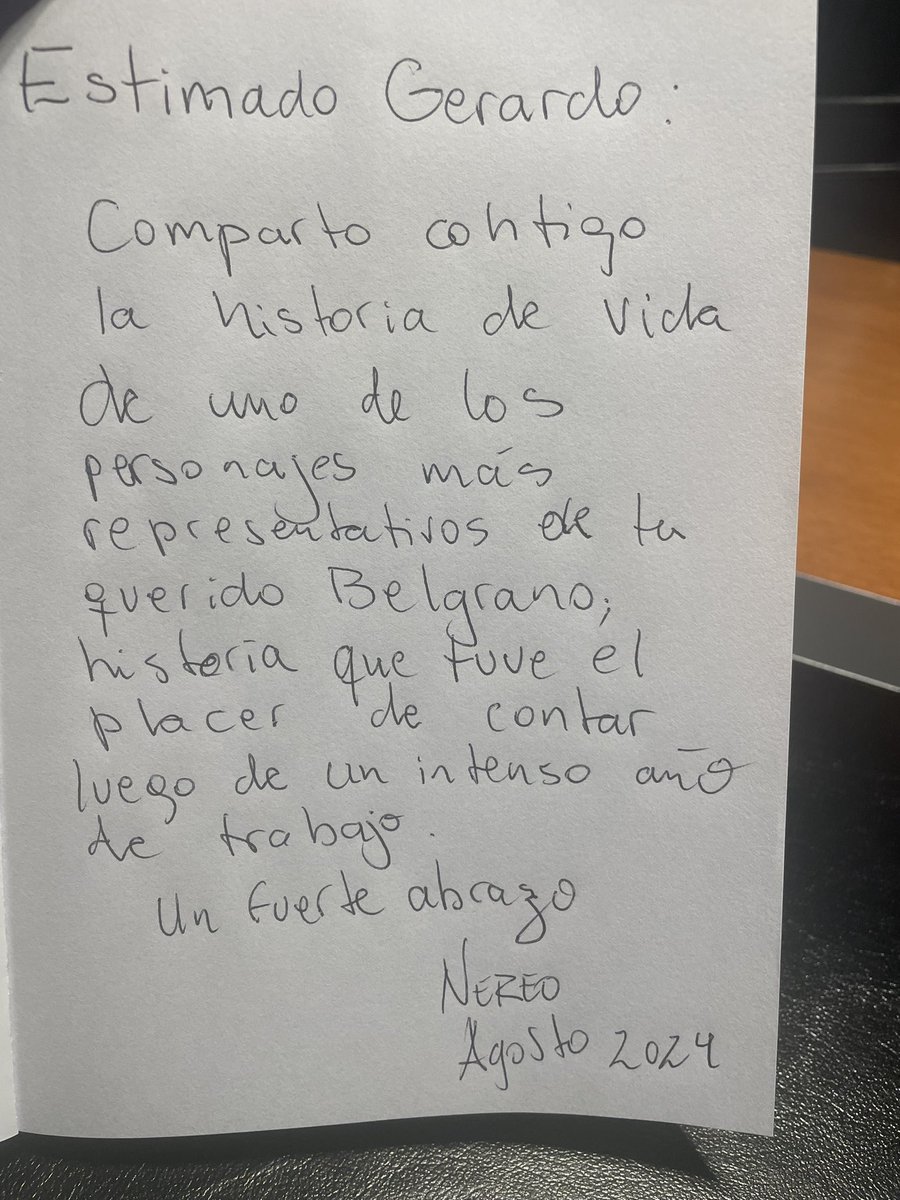 Estimado Gerardo:
Comparto contigo
la historia de vida
de uno de los
personajes más
representativos de tu
querido Belgrano;
historia que tuve el
placer de contar
luego de un intenso año
de trabajo.
Un fuerte abrazo
NEREO
Agosto 2024